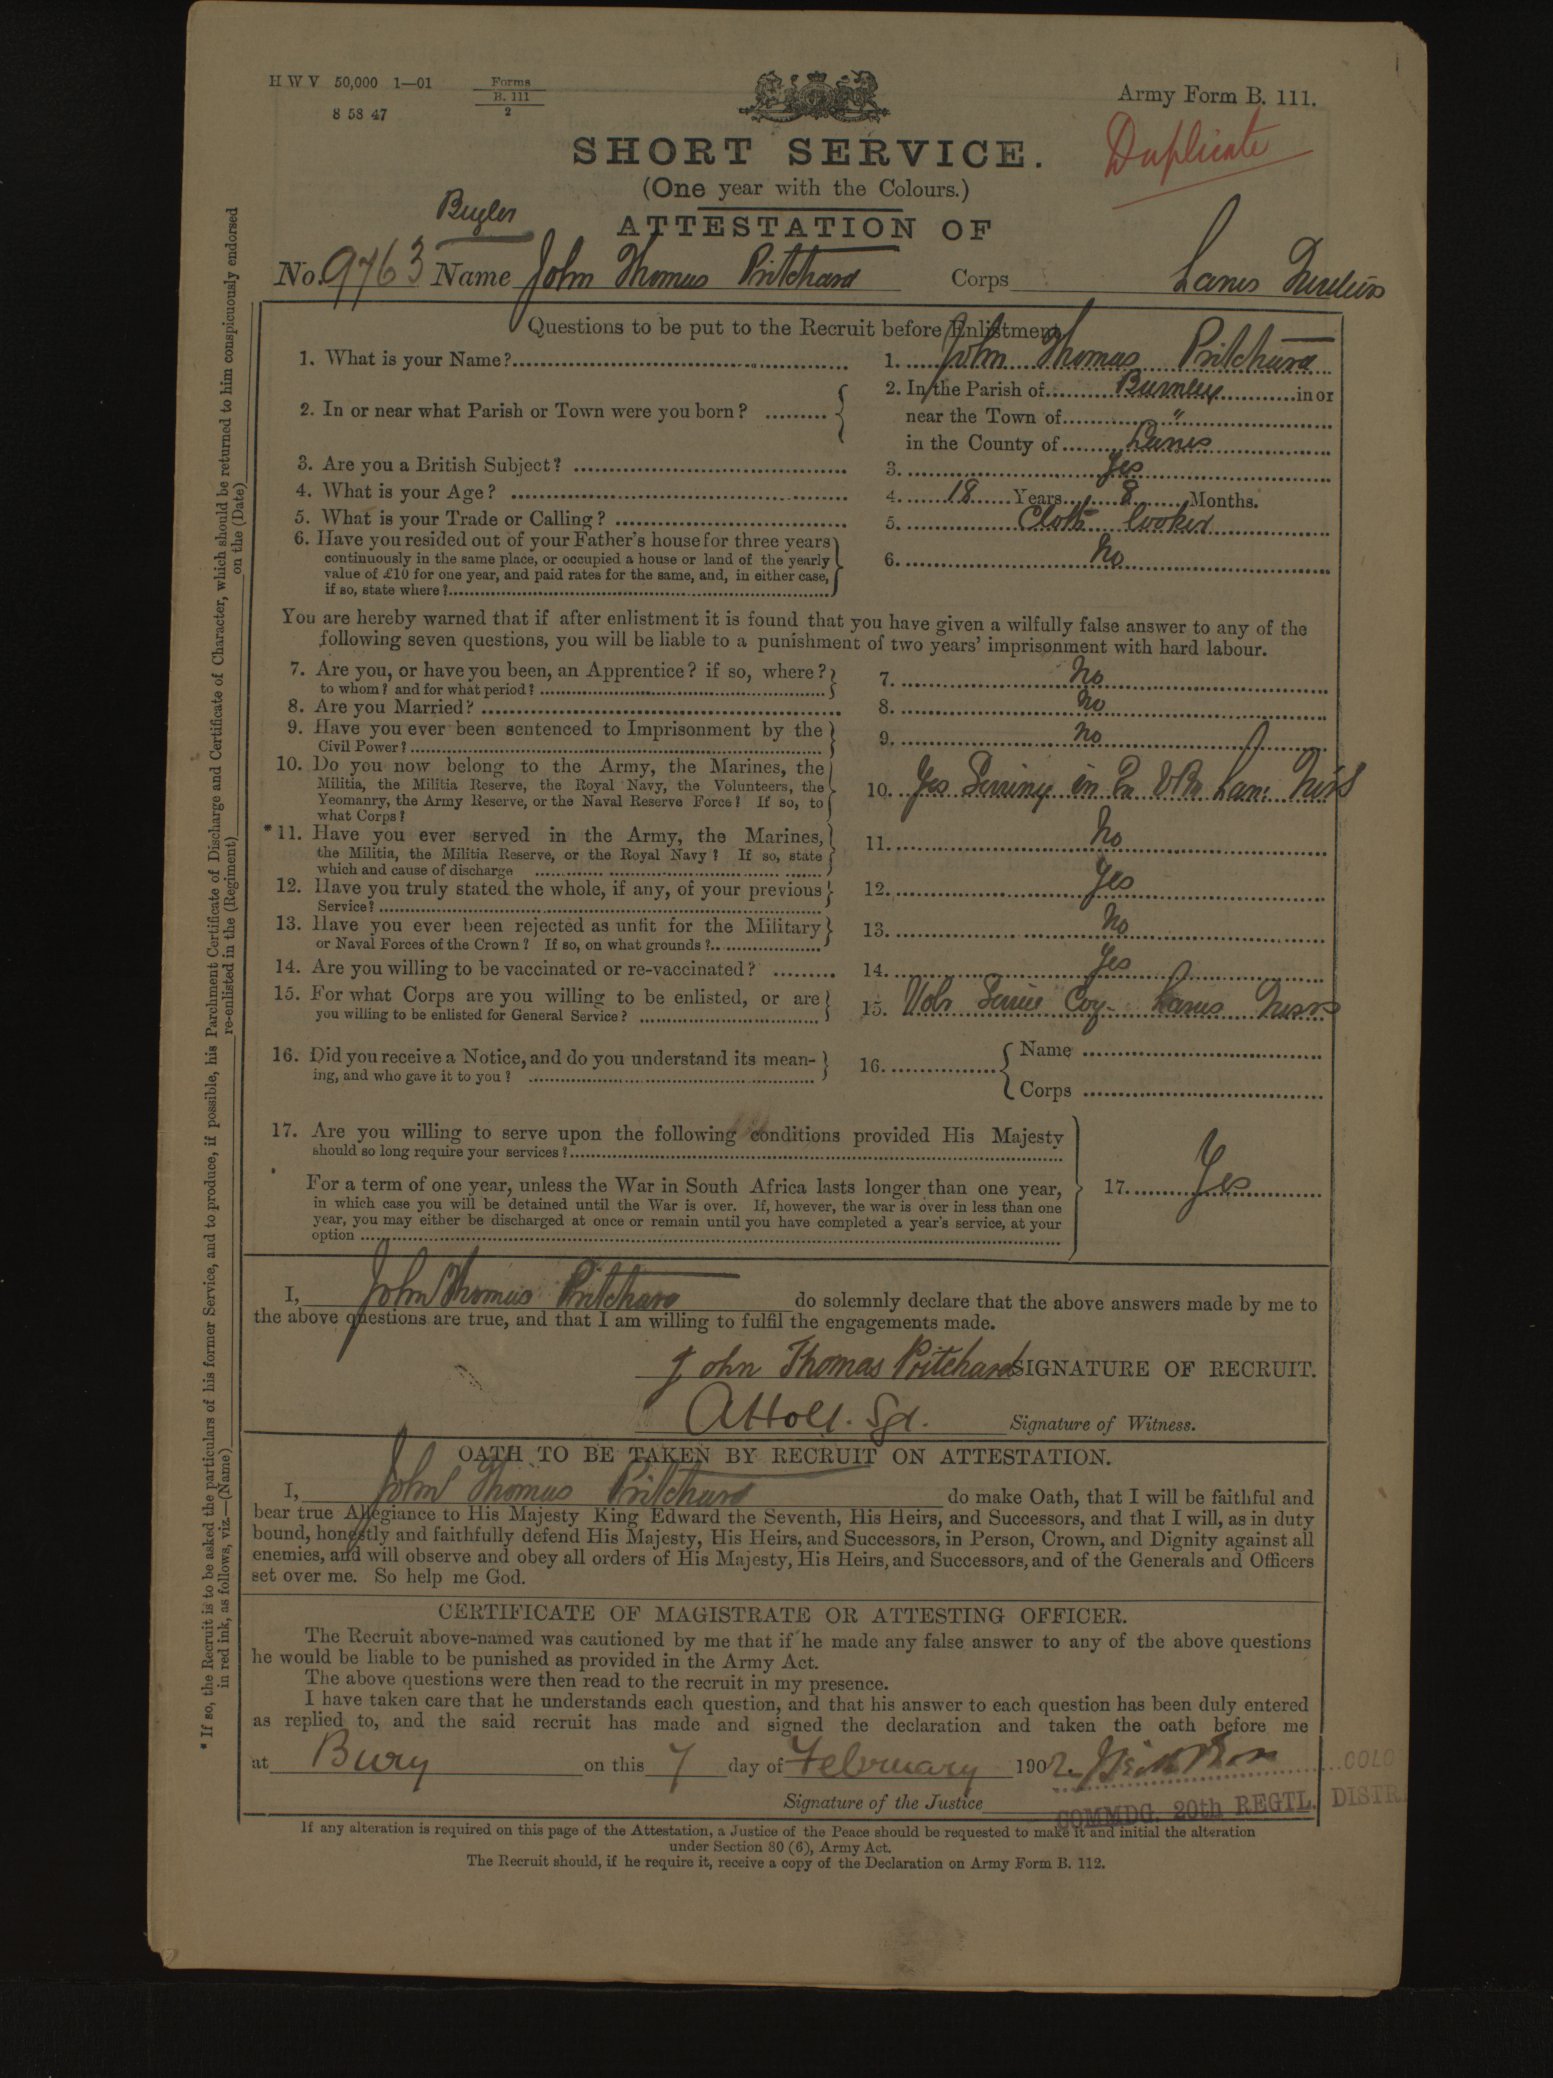 H W V 50,000 1—01 Forms
B. 111
2
8 53 47
Army Form B. 111.
Duplicate
SHORT SERVICE.
(One year with the Colours.)
Bugler
ATTESTATION OF
No. 9763 Name John Thomas Pritchard Corps Lancs Fusiliers
Questions to be put to the Recruit before Enlistment.
1. What is your Name? 1. John Thomas Pritchard
2. In or near what Parish or Town were you born? 2. In the Parish of Burnley in or
near the Town of "
in the County of Lancs
3. Are you a British Subject? 3. Yes
4. What is your Age? 4. 18 Years 8 Months.
5. What is your Trade or Calling? 5. Cloth looker
6. Have you resided out of your Father's house for three years
continuously in the same place, or occupied a house or land of the yearly
value of £10 for one year, and paid rates for the same, and, in either case,
if so, state where? 6. No
You are hereby warned that if after enlistment it is found that you have given a wilfully false answer to any of the
following seven questions, you will be liable to a punishment of two years' imprisonment with hard labour.
7. Are you, or have you been, an Apprentice? if so, where?
to whom? and for what period? 7. No
8. Are you Married? 8. No
9. Have you ever been sentenced to Imprisonment by the
Civil Power? 9. No
10. Do you now belong to the Army, the Marines, the
Militia, the Militia Reserve, the Royal Navy, the Volunteers, the
Yeomanry, the Army Reserve, or the Naval Reserve Force? If so, to
what Corps? 10. Yes Serving in VB Lan: Fus
*11. Have you ever served in the Army, the Marines,
the Militia, the Militia Reserve, or the Royal Navy? If so, state
which and cause of discharge 11. No
12. Have you truly stated the whole, if any, of your previous
Service? 12. Yes
13. Have you ever been rejected as unfit for the Military
or Naval Forces of the Crown? If so, on what grounds? 13. No
14. Are you willing to be vaccinated or re-vaccinated? 14. Yes
15. For what Corps are you willing to be enlisted, or are
you willing to be enlisted for General Service? 15. Volr Service Coy- Lancs Fusrs
16. Did you receive a Notice, and do you understand its mean-
ing, and who gave it to you? 16. Name
Corps
17. Are you willing to serve upon the following conditions provided His Majesty
should so long require your services?
For a term of one year, unless the War in South Africa lasts longer than one year,
in which case you will be detained until the War is over. If, however, the war is over in less than one
year, you may either be discharged at once or remain until you have completed a year's service, at your
option 17. Yes
I, John Thomas Pritchard do solemnly declare that the above answers made by me to
the above questions are true, and that I am willing to fulfil the engagements made.
John Thomas Pritchard SIGNATURE OF RECRUIT.
Signature of Witness.
OATH TO BE TAKEN BY RECRUIT ON ATTESTATION.
I, John Thomas Pritchard do make Oath, that I will be faithful and
bear true Allegiance to His Majesty King Edward the Seventh, His Heirs, and Successors, and that I will, as in duty
bound, honestly and faithfully defend His Majesty, His Heirs, and Successors, in Person, Crown, and Dignity against all
enemies, and will observe and obey all orders of His Majesty, His Heirs, and Successors, and of the Generals and Officers
set over me. So help me God.
CERTIFICATE OF MAGISTRATE OR ATTESTING OFFICER.
The Recruit above-named was cautioned by me that if he made any false answer to any of the above questions
he would be liable to be punished as provided in the Army Act.
The above questions were then read to the recruit in my presence.
I have taken care that he understands each question, and that his answer to each question has been duly entered
as replied to, and the said recruit has made and signed the declaration and taken the oath before me
at Bury on this 7 day of February 1902. COLO
Signature of the Justice
COMMDG. 20th REGTL. DISTR
If any alteration is required on this page of the Attestation, a Justice of the Peace should be requested to make it and initial the alteration
under Section 80 (6), Army Act.
The Recruit should, if he require it, receive a copy of the Declaration on Army Form B. 112.
* If so, the Recruit is to be asked the particulars of his former Service, and to produce, if possible, his Parchment Certificate of Discharge and Certificate of Character, which should be returned to him conspicuously endorsed
in red ink, as follows, viz.—(Name) re-enlisted in the (Regiment) on the (Date)